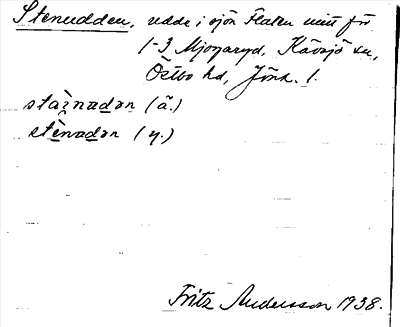 Stenudden, udde i sjön Flaten mitt för
1-3 Mjogaryd, Kävsjö sn,
Östbo hd, Jönk. l.
staìnadən (ä.)
stènadən (y.)
Fritz Andersson 1938.